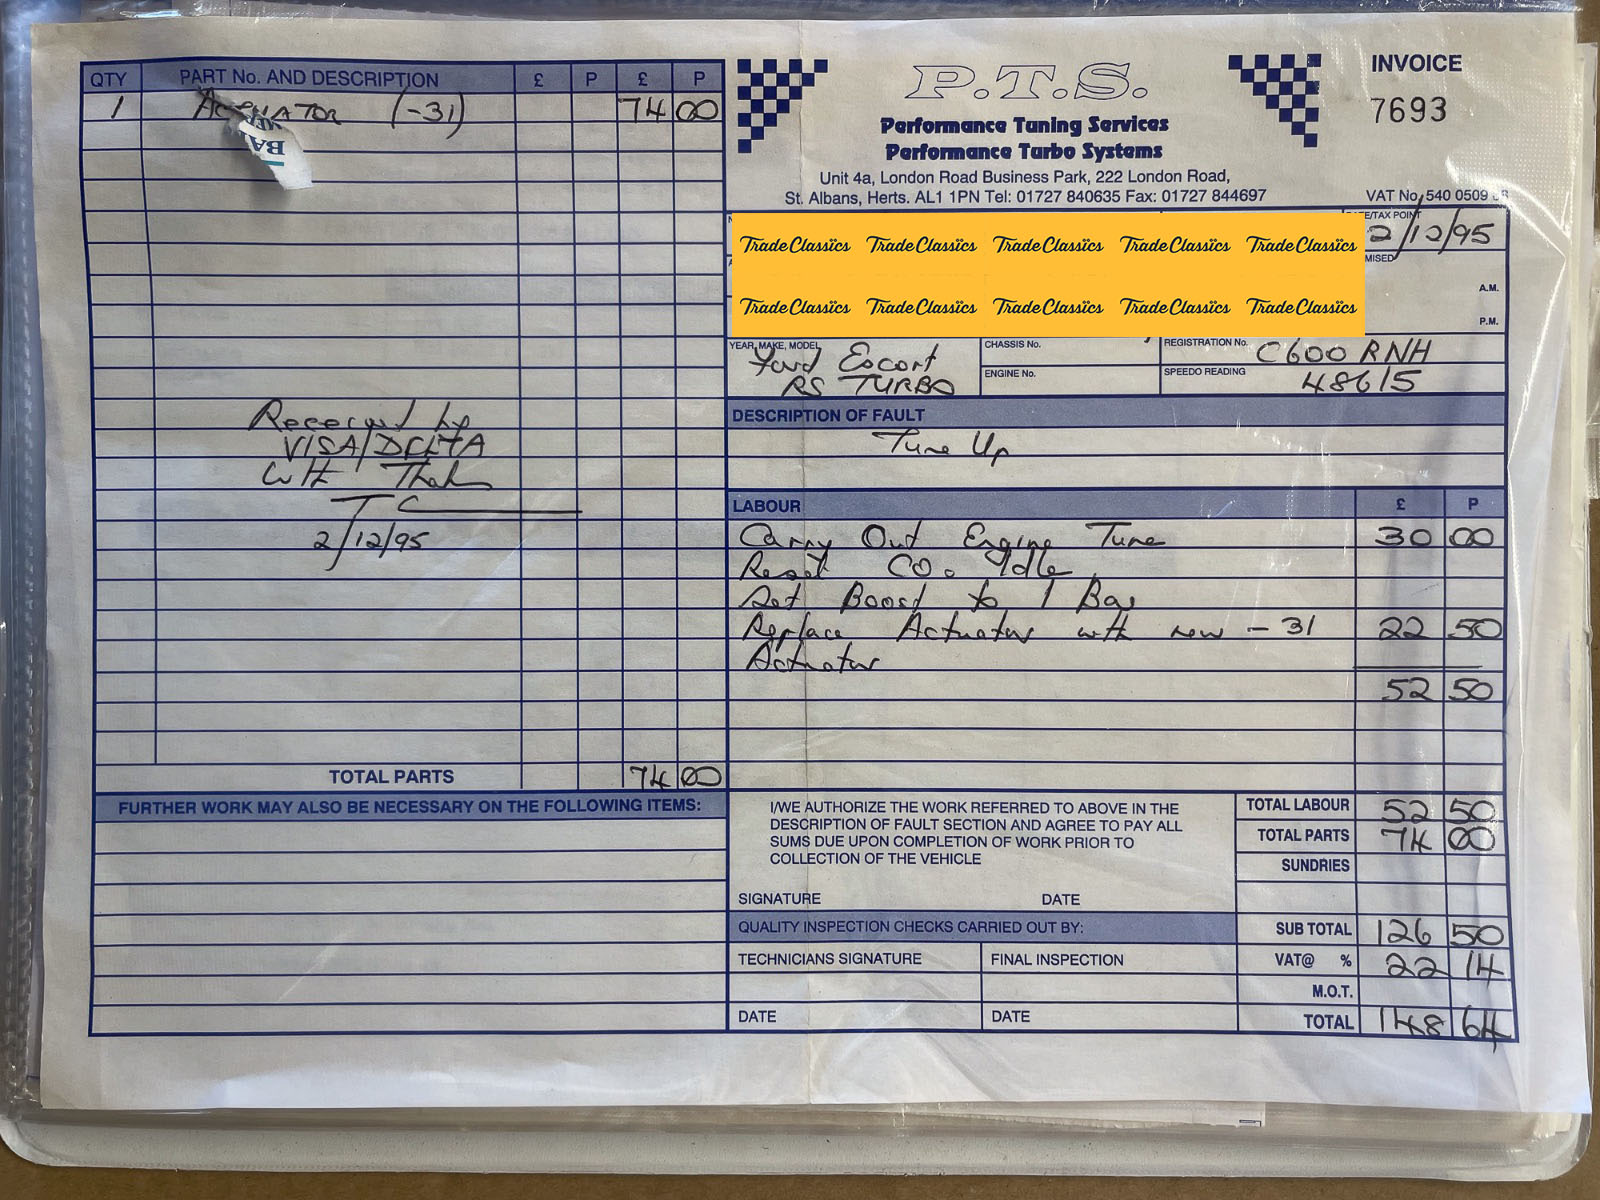 QTY PART No. AND DESCRIPTION £ P £ P
1 ACTUATOR (-31) 74 00
BA
Received by
VISA/DELTA
With Thanks
TC
2/12/95
TOTAL PARTS 74 00
FURTHER WORK MAY ALSO BE NECESSARY ON THE FOLLOWING ITEMS:
P.T.S.
INVOICE
7693
Performance Tuning Services
Performance Turbo Systems
Unit 4a, London Road Business Park, 222 London Road,
St. Albans, Herts. AL1 1PN Tel: 01727 840635 Fax: 01727 844697
VAT No. 540 0509
TradeClassics TradeClassics TradeClassics TradeClassics TradeClassics
TradeClassics TradeClassics TradeClassics TradeClassics TradeClassics
/TAX POINT
2/12/95
MISED
A.M.
P.M.
YEAR, MAKE, MODEL Ford Escort
RS TURBO
CHASSIS No.
ENGINE No.
REGISTRATION No. C600 RNH
SPEEDO READING 48615
DESCRIPTION OF FAULT
Tune Up
LABOUR £ P
Carry Out Engine Tune 30 00
Reset CO. Idle
Set Boost to 1 Bar
Replace Actuator with new -31 22 50
Actuator
52 50
I/WE AUTHORIZE THE WORK REFERRED TO ABOVE IN THE
DESCRIPTION OF FAULT SECTION AND AGREE TO PAY ALL
SUMS DUE UPON COMPLETION OF WORK PRIOR TO
COLLECTION OF THE VEHICLE
SIGNATURE DATE
TOTAL LABOUR 52 50
TOTAL PARTS 74 00
SUNDRIES
QUALITY INSPECTION CHECKS CARRIED OUT BY:
TECHNICIANS SIGNATURE FINAL INSPECTION
DATE DATE
SUB TOTAL 126 50
VAT@ % 22 14
M.O.T.
TOTAL 148 64